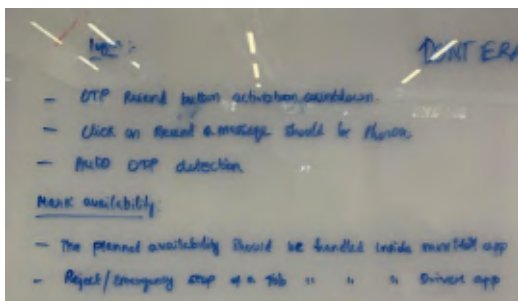 DONT ERA
- OTP Resend button activation countdown.
- Click on Resend a message should be
- Auto OTP detection
Mark availability:
- The planned availability should be handled inside app
- Reject/Emergency stop of a Job " " " Driver app